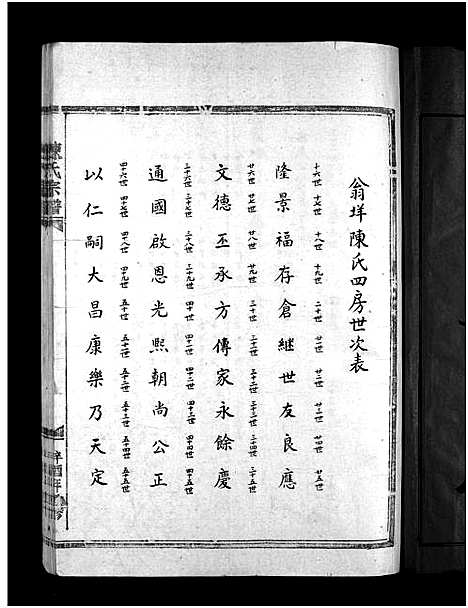 翁垟陳氏四房世次表
十六世 十七世 十八世 十九世 二十世 廿一世 廿二世 廿三世 廿四世 廿五世
隆景福存倉繼世友良應
廿六世 廿七世 廿八世 廿九世 三十世 三十一世 三十二世 三十三世 三十四世 三十五世
文德丕承方傳家永餘慶
三十六世 三十七世 三十八世 三十九世 四十世 四十一世 四十二世 四十三世 四十四世 四十五世
通國啟恩光熙朝尚公正
四十六世 四十七世 四十八世 四十九世 五十世 五十一世 五十二世 五十三世 五十四世 五十五世
以仁嗣大昌康樂乃天定
陳氏宗譜